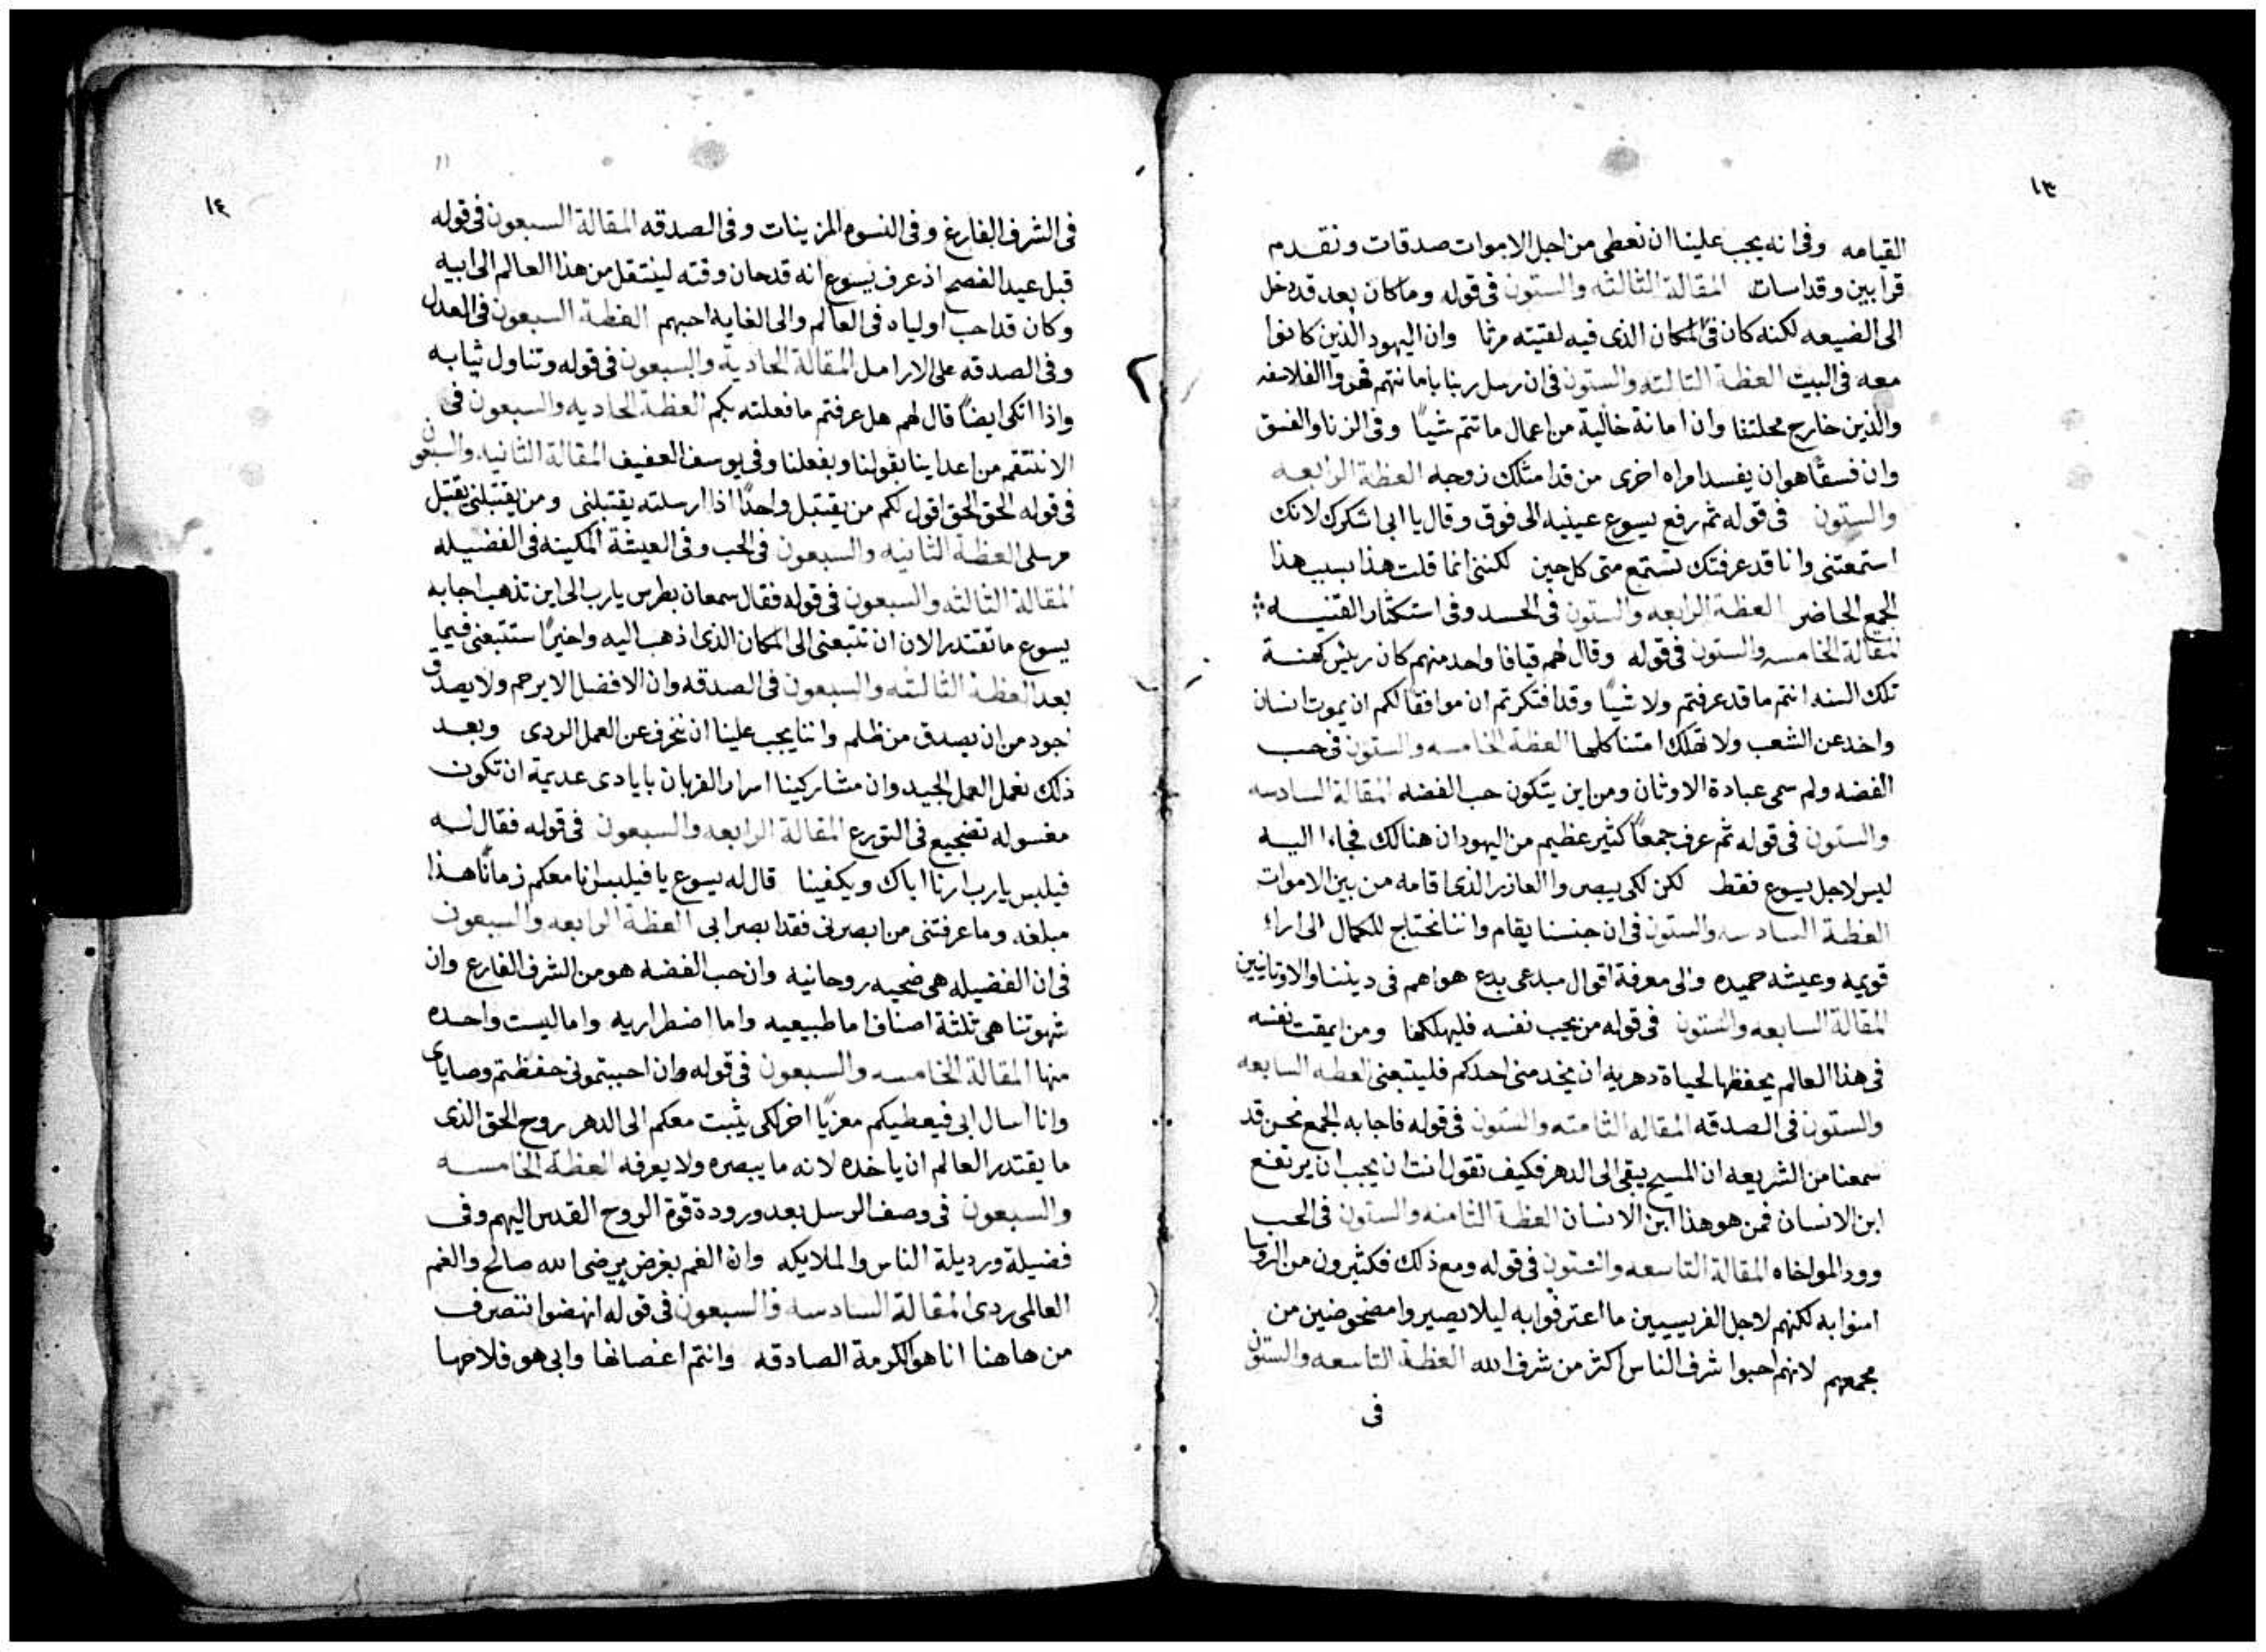 ١٣
القيامه وفى انه يجب علينا ان نعطى من اجل الاموات صدقات ونقدم
قرابين وقداسات المقالة الثالثه والستون فى قوله وما كان بعد قد دخل
الى الضيعه لكنه كان فى المكان الذى فيه لقيته مرثا وان اليهود الذين كانوا
معه فى البيت العظة الثالثه والستون فى ان رسل ربنا بامانتهم قهروا الفلاسفه
والذين خارج محلتنا وان امانة خالية من اعمال ما تتم شيًا وفى الزنا والفسق
وان فسقًا هو ان يفسد امراه اخرى من قد امتلك زوجه العظة الرابعه
والستون فى قوله ثم رفع يسوع عينيه الى فوق وقال يا ابى اشكرك لانك
استمعتنى وانا قد عرفتك تستمع متى كل حين لكننى انما قلت هذا بسبب هذا
الجمع الحاضر العظة الرابعه والستون فى الحسد وفى استكثار القنيه
المقالة الخامسه والستون فى قوله وقال لهم قيافا واحد منهم كان رييس كهنة
تلك السنه انتم ما قد عرفتم ولا شيًا وقد افتكرتم ان موافقًا لكم ان يموت انسان
واحد عن الشعب ولا تهلك امتنا كلها العظة الخامسه والستون فى حب
الفضه ولم سمى عبادة الاوثان ومن اين يتكون حب الفضه المقالة السادسه
والستون فى قوله ثم عرف جمعًا كثير عظيم من اليهود ان هنالك فجاءا اليه
ليس لاجل يسوع فقط لكن لكى يبصروا العازر الذى اقامه من بين الاموات
العظة السادسه والستون فى ان جنسنا يقام واننا نحتاج للكمال الى اراء
قويمه وعيشه حميده والى معرفة اقوال مبدعى بدع هواهم فى ديننا والاوثانيين
المقالة السابعه والستون فى قوله من يحب نفسه فليهلكها ومن يمقت نفسه
فى هذا العالم يحفظها لحياة دهريه ان يخدمنى احدكم فليتبعنى العظه السابعه
والستون فى الصدقه المقاله الثامنه والستون فى قوله فاجابه الجمع نحن قد
سمعنا من الشريعه ان المسيح يبقى الى الدهر فكيف تقول انت ان يجب ان يرتفع
ابن الانسان فمن هو هذا ابن الانسان العظة الثامنه والستون فى الحب
وود المواخاه المقالة التاسعه والستون فى قوله ومع ذلك فكثيرون من الروسا
امنوا به لكنهم لاجل الفريسيين ما اعترفوا به ليلا يصيروا مضحوضين من
مجمعهم لانهم احبوا شرف الناس اكثر من شرف الله العظة التاسعه والستون
فى
١٤
١١
فى الشرف الفارغ وفى النسوه المزينات وفى الصدقه المقالة السبعون فى قوله
قبل عيد الفصح اذ عرف يسوع انه قد حان وقته لينتقل من هذا العالم الى ابيه
وكان قد احب اولياه فى العالم والى الغايه احبهم العظة السبعون فى العدل
وفى الصدقه على الارامل المقالة الحاديه والسبعون فى قوله وتناول ثيابه
واذا اتكى ايضًا قال لهم هل عرفتم ما فعلته بكم العظة الحاديه والسبعون فى
الا ننتقم من اعداينا بقولنا وبفعلنا وفى يوسف العفيف المقالة الثانيه والسبعون
فى قوله الحق الحق اقول لكم من يقتبل واحدًا اذا ارسلته يقتبلنى ومن يقتبلنى يقتبل
مرسلى العظة الثانيه والسبعون فى الحب وفى العيشة المكينه فى الفضيله
المقالة الثالثه والسبعون فى قوله فقال سمعان بطرس يا رب الى اين تذهب اجابه
يسوع ما تقتدر الان ان تتبعنى الى المكان الذى اذهب اليه واخيرًا ستتبعنى فيما
بعد العظة الثالثه والسبعون فى الصدقه وان الافضل الا يرحم ولا يصدق
اجود من ان يصدق من ظلم واننا يجب علينا ان ننحرف عن العمل الردى وبعد
ذلك نعمل العمل الجيد وان مشاركينا اسرار القربان بايادى عديمة ان تكون
مغسوله تضجيع فى التورع المقالة الرابعه والسبعون فى قوله فقال له
فيلبس يا رب ارنا اباك ويكفينا قال له يسوع يا فيلبس انا معكم زمانًا هذا
مبلغه وما عرفتنى من ابصرنى فقد ابصر ابى العظة الرابعه والسبعون
فى ان الفضيله هى ضحيه روحانيه وان حب الفضه هو من الشرف الفارغ وان
شهوتنا هى ثلثة اصناف اما طبيعيه واما اضطراريه واما ليست واحده
منها المقالة الخامسه والسبعون فى قوله وان احببتمونى حفظتم وصاياى
وانا اسال ابى فيعطيكم معزيًا اخر لكى يثبت معكم الى الدهر روح الحق الذى
ما يقتدر العالم ان ياخده لانه ما يبصره ولا يعرفه العظة الخامسه
والسبعون فى وصف الرسل بعد ورودة قوة الروح القدس اليهم وفى
فضيلة ورديلة الناس والملايكه وان الغم بغرض يرضى الله صالح والغم
العالمى ردى المقالة السادسه والسبعون فى قوله انهضوا ننصرف
من هاهنا انا هو الكرمة الصادقه وانتم اغصانها وابى هو فلاحها